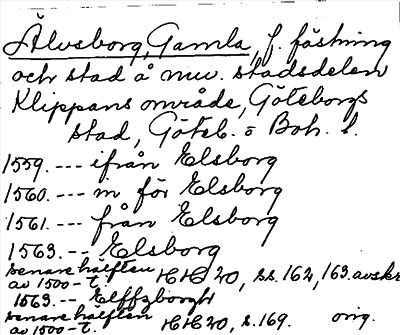 Älvsborg, Gamla, f. fästning
och stad å nuv. stadsdelen
Klippans område, Göteborgs
stad, Göteb. o Boh. l.
1559. --- ifrån Elsborg
1560. --- in för Elsborg
1561. --- från Elsborg
1563. -- Elsborg
senare hälften
av 1500-t. HH 20, ss. 162, 163. avskr.
1563. -- Elffzborgh
senare hälften
av 1500-t. HH 20, s. 169. orig.